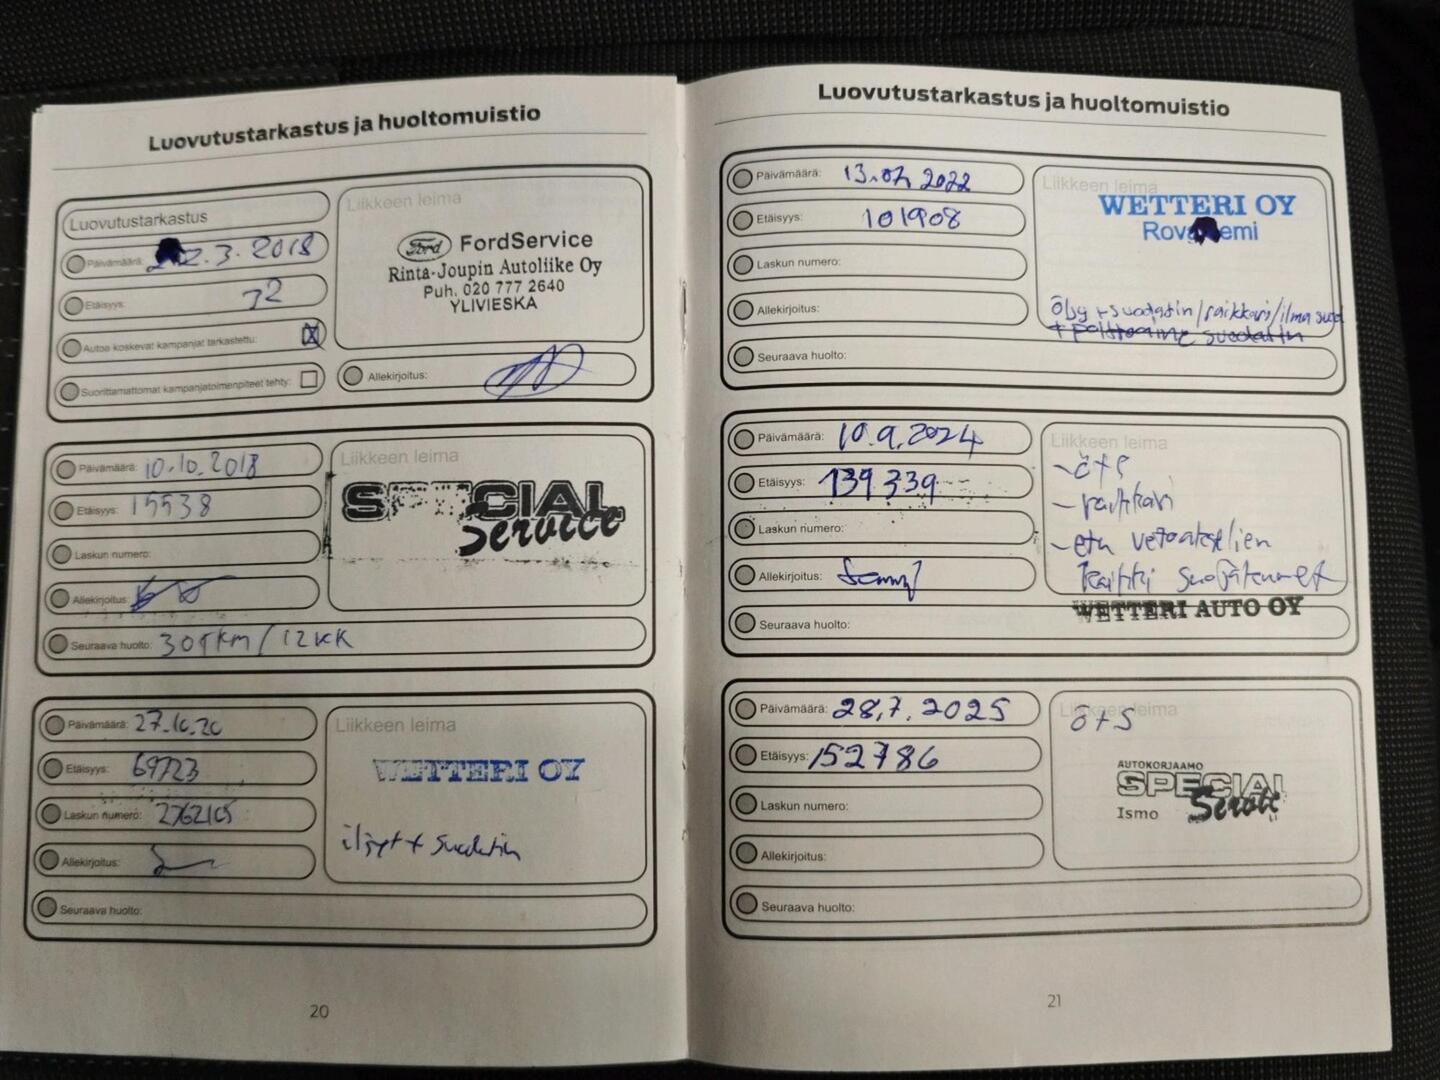 Luovutustarkastus ja huoltomuistio
Luovutustarkastus
Päivämäärä: 2.3.2018
Etäisyys: 32
Autoa koskevat kampanjat tarkastettu: X
Suorittamattomat kampanjatoimenpiteet tehty:
Liikkeen leima
Ford FordService
Rinta-Joupin Autoliike Oy
Puh. 020 777 2640
YLIVIESKA
Allekirjoitus:
Päivämäärä: 10.10.2018
Etäisyys: 15538
Laskun numero:
Allekirjoitus:
Seuraava huolto: 30tkm/12kk
Liikkeen leima
SPECIAL
Service
Päivämäärä: 27.10.20
Etäisyys: 69723
Laskun numero: 2762105
Allekirjoitus:
Seuraava huolto:
Liikkeen leima
WETTERI OY
öljyt + suodatin
20
Luovutustarkastus ja huoltomuistio
Päivämäärä: 13.07.2022
Etäisyys: 101908
Laskun numero:
Allekirjoitus:
Seuraava huolto:
Liikkeen leima
WETTERI OY
Rovaniemi
öljy + suodatin/raikkari/ilma suod
+ polttoaine suodatin
Päivämäärä: 10.9.2024
Etäisyys: 139339
Laskun numero:
Allekirjoitus:
Seuraava huolto:
Liikkeen leima
- ö+s
- raikkari
- etu vetoakselien
kaikki suojakumet
WETTERI AUTO OY
Päivämäärä: 28.7.2025
Etäisyys: 152786
Laskun numero:
Allekirjoitus:
Seuraava huolto:
Liikkeen leima
ö+s
AUTOKORJAAMO
SPECIAL
Service
Ismo
21